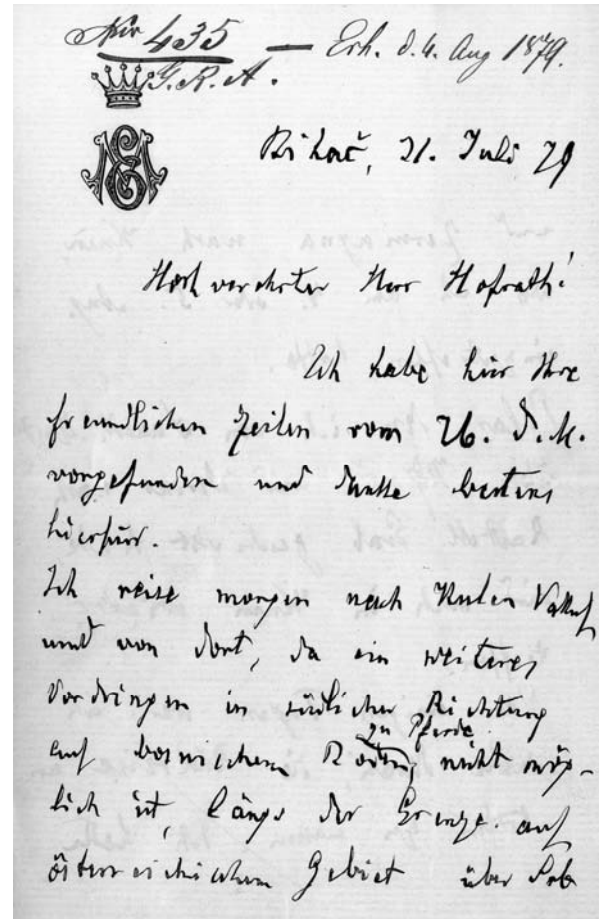 Nro 435 — Erh. d. 4. Aug 1879.
G. R. A.
Bihać, 31. Juli 79
Hochverehrter Herr Hofrath!
Ich habe hier Ihre
freundlichen Zeilen vom 26. d. M.
vorgefunden und danke bestens
hierfür.
Ich reise morgen nach Kulen Vakuf
und von dort, da ein weiteres
Vordringen in südlicher Richtung
zu Pferde
auf bosnischem nicht mög-
lich ist, längs der Grenze auf
österreichischem Gebiet über